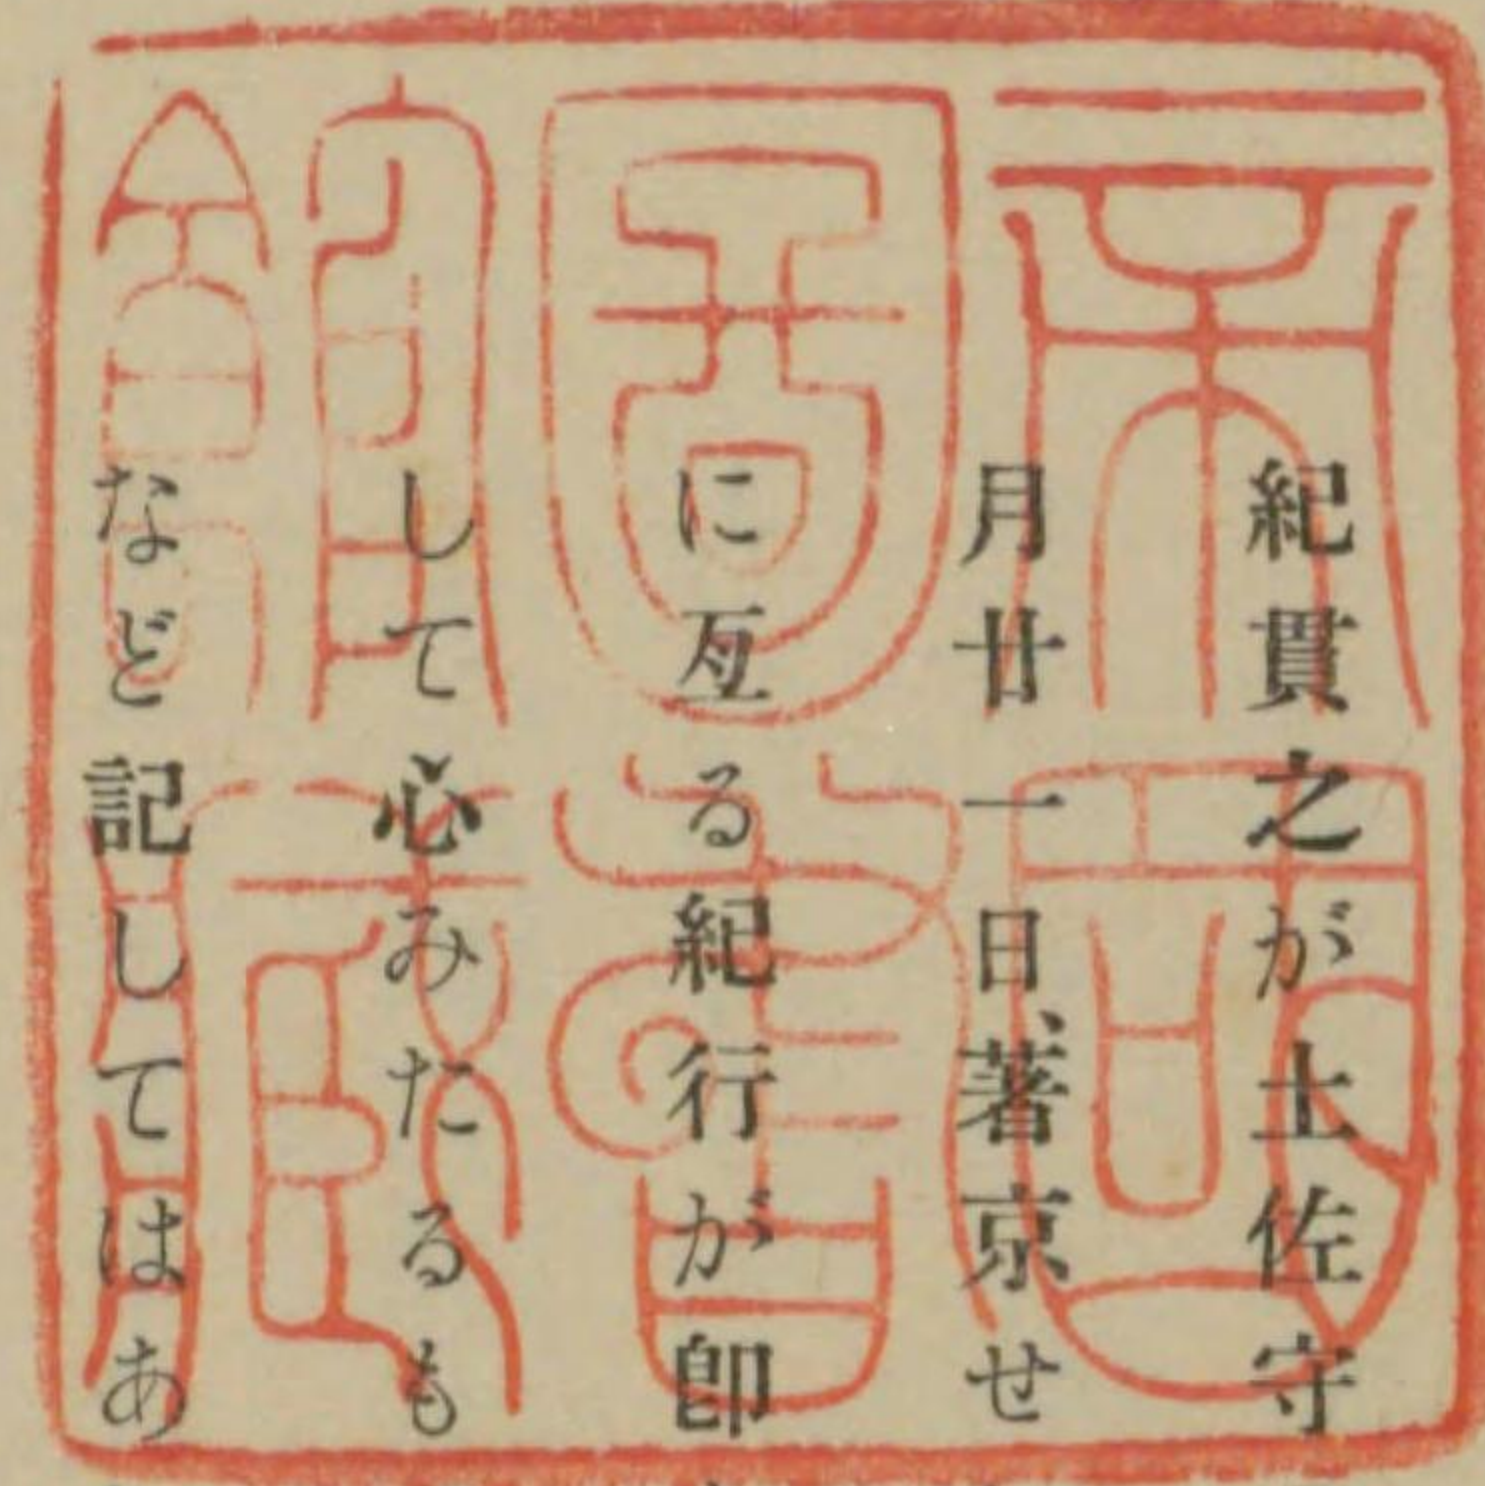 紀貫之が土佐守
月廿一日、著京せ
に亙る紀行が卽
して心みたるも
など記してはあ
帝國
圖書
館藏